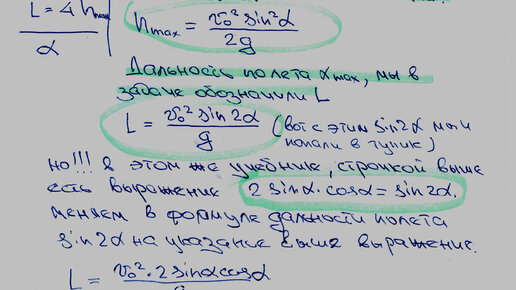 L = 4 h max
α
h max = v₀² sin²α / 2g
Дальность полета x max, мы в
задаче обозначили L
L = v₀² sin 2α / g (вот с этим sin2α мы и
попали в тупик)
но!!! в этом же учебнике, строчкой выше
есть выражение 2 sinα · cosα = sin2α.
меняем в формуле дальности полета
sin2α на указанное выше выражение.
L = v₀² · 2 sinα cosα